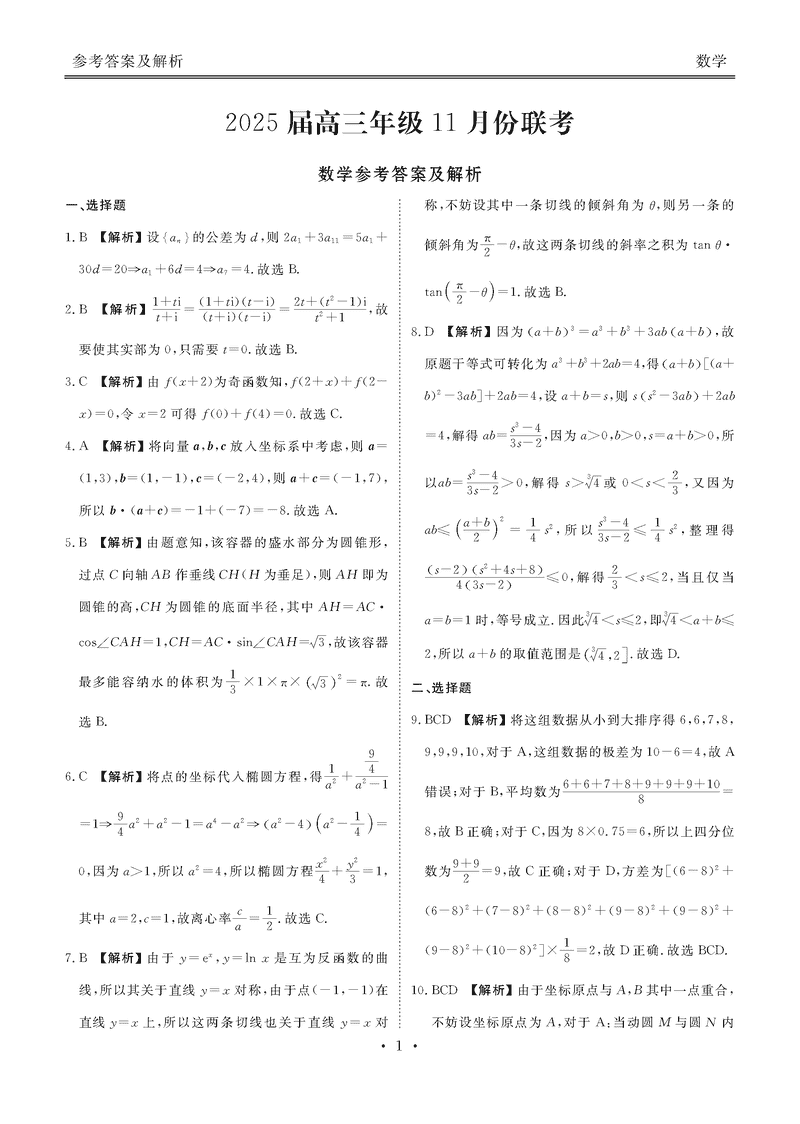 参考答案及解析 数学
2025届高三年级11月份联考
数学参考答案及解析
一、选择题
1. B 【解析】设{aₙ}的公差为d,则2a₁+3a₁₁=5a₁+
30d=20⇒a₁+6d=4⇒a₇=4.故选B.
2. B 【解析】(1+ti)/(t+i)=((1+ti)(t-i))/((t+i)(t-i))=(2t+(t²-1)i)/(t²+1),故
要使其实部为0,只需要t=0.故选B.
3. C 【解析】由f(x+2)为奇函数知,f(2+x)+f(2-
x)=0,令x=2可得f(0)+f(4)=0.故选C.
4. A 【解析】将向量a,b,c放入坐标系中考虑,则a=
(1,3),b=(1,-1),c=(-2,4),则a+c=(-1,7),
所以b·(a+c)=-1+(-7)=-8.故选A.
5. B 【解析】由题意知,该容器的盛水部分为圆锥形,
过点C向轴AB作垂线CH(H为垂足),则AH即为
圆锥的高,CH为圆锥的底面半径,其中AH=AC·
cos∠CAH=1,CH=AC·sin∠CAH=√3,故该容器
最多能容纳水的体积为1/3×1×π×(√3)²=π.故
选B.
6. C 【解析】将点的坐标代入椭圆方程,得1/a²+(9/4)/(a²-1)
=1⇒9/4a²+a²-1=a⁴-a²⇒(a²-4)(a²-1/4)=
0,因为a>1,所以a²=4,所以椭圆方程x²/4+y²/3=1,
其中a=2,c=1,故离心率c/a=1/2.故选C.
7. B 【解析】由于y=eˣ,y=ln x是互为反函数的曲
线,所以其关于直线y=x对称,由于点(-1,-1)在
直线y=x上,所以这两条切线也关于直线y=x对
称,不妨设其中一条切线的倾斜角为θ,则另一条的
倾斜角为π/2-θ,故这两条切线的斜率之积为tan θ·
tan(π/2-θ)=1.故选B.
8. D 【解析】因为(a+b)³=a³+b³+3ab(a+b),故
原题干等式可转化为a³+b³+2ab=4,得(a+b)[(a+
b)²-3ab]+2ab=4,设a+b=s,则s(s²-3ab)+2ab
=4,解得ab=(s³-4)/(3s-2),因为a>0,b>0,s=a+b>0,所
以ab=(s³-4)/(3s-2)>0,解得s>∛4或0<s<2/3,又因为
ab≤((a+b)/2)²=1/4s²,所以(s³-4)/(3s-2)≤1/4s²,整理得
((s-2)(s²+4s+8))/(4(3s-2))≤0,解得2/3<s≤2,当且仅当
a=b=1时,等号成立.因此∛4<s≤2,即∛4<a+b≤
2,所以a+b的取值范围是(∛4,2].故选D.
二、选择题
9. BCD 【解析】将这组数据从小到大排序得6,6,7,8,
9,9,9,10,对于A,这组数据的极差为10-6=4,故A
错误;对于B,平均数为(6+6+7+8+9+9+9+10)/8=
8,故B正确;对于C,因为8×0.75=6,所以上四分位
数为(9+9)/2=9,故C正确;对于D,方差为[(6-8)²+
(6-8)²+(7-8)²+(8-8)²+(9-8)²+(9-8)²+
(9-8)²+(10-8)²]×1/8=2,故D正确.故选BCD.
10. BCD 【解析】由于坐标原点与A,B其中一点重合,
不妨设坐标原点为A,对于A:当动圆M与圆N内
· 1 ·